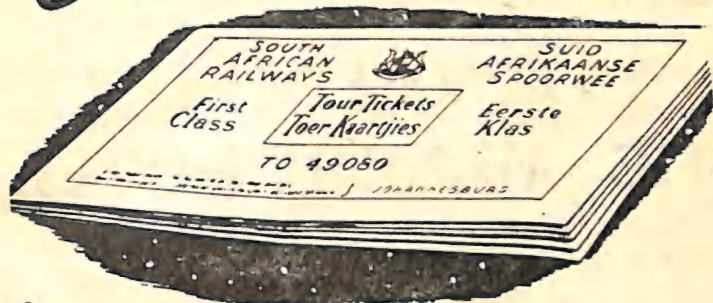 SOUTH AFRICAN RAILWAYS
SUID AFRIKAANSE SPOORWEË
First Class
Tour Tickets
Toer Kaartjies
Eerste Klas
TO 49080
JOHANNESBURG